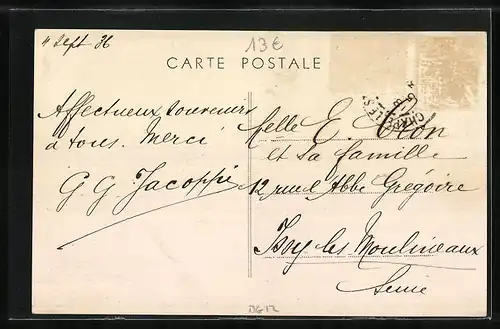 11 Sept 36
13€
CARTE POSTALE
Affectueux souvenirs
à tous. Merci
G G Jacoppi
Melle E. Olon
et sa famille
12, rue l'Abbé Grégoire
Issy les Moulineaux
Seine
DG12